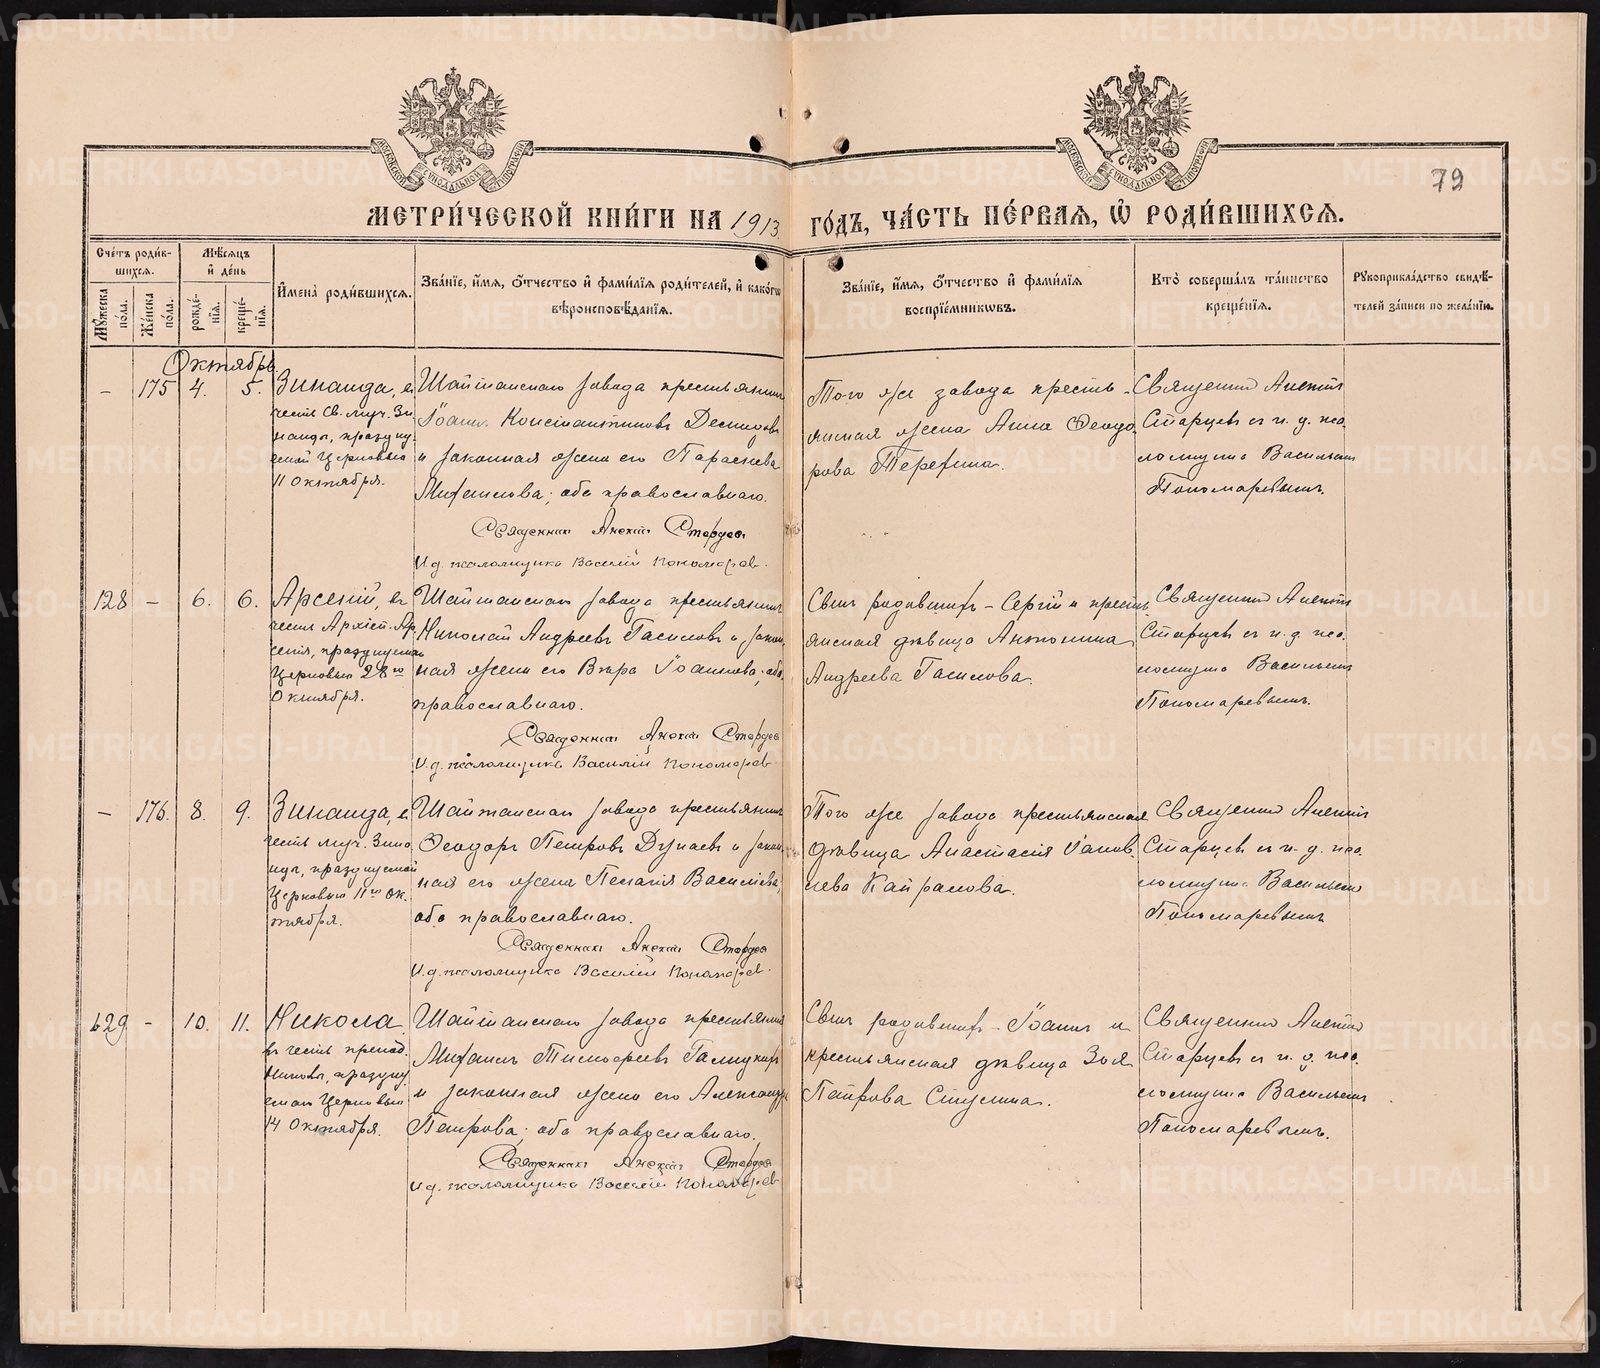 МЕТРИ́ЧЕСКОЙ КНИ́ГИ НА 1913 ГО́ДЪ, ЧА́СТЬ ПЕ́РВАЯ, Ѡ҆ РОДИ́ВШИХСЯ.
79
Сче́тъ роди́в-
шихся.
Мѣ́сяцъ
и҆ де́нь
Му́жеска
по́ла.
Же́нска
по́ла.
рожде́-
нїя.
креще́-
нїя.
И҆мена̀ роди́вшихся.
Зва́нїе, и҆́мя, ѻ҆́тчество и҆ фами́лїя роди́телей, и҆ како́гѡ
вѣроисповѣ́данїя.
Зва́нїе, и҆́мя, ѻ҆́тчество и҆ фами́лїя
воспрїе́мникѡвъ.
Кто̀ соверша́лъ та́инство
креще́нїя.
Рꙋкоприкла́дство свидѣ́-
телей за́писи по жела́нїю.
Октябрь
– 175 4. 5.
Зинаида, въ
честь Св. муч. Зи-
наиды, празднуе-
мой Церковью
11 Октября.
Шайтанскаго завода крестьянинъ
Іоаннъ Константиновъ Демидовъ
и законная жена его Параскева
Михаилова; оба православнаго.
Священникъ Алексій Старцевъ
И. д. псаломщика Василій Пономаревъ.
Того же завода кресть-
янская жена Анна Ѳеодо-
рова Терехина.
Священникъ Алексій
Старцевъ съ и. д. пса-
ломщика Васильемъ
Пономаревымъ.
128 – 6. 6.
Арсеній, въ
честь Архіеп. Ар-
сенія, празднуемаго
Церковью 28го
Октября.
Шайтанскаго завода крестьянинъ
Николай Андреевъ Гасиловъ и закон-
ная жена его Вѣра Іоаннова; оба
православнаго.
Священникъ Алексій Старцевъ
И. д. псаломщика Василій Пономаревъ
Сынъ родившихъ – Сергій и кресть-
янская дѣвица Антонина
Андреева Гасилова.
Священникъ Алексій
Старцевъ съ и. д. пса-
ломщика Васильемъ
Пономаревымъ.
– 176. 8. 9.
Зинаида, въ
честь муч. Зина-
иды, празднуемой
Церковью 11го Ок-
тября.
Шайтанскаго завода крестьянинъ
Ѳеодоръ Петровъ Дунаевъ и закон-
ная его жена Пелагія Василіева;
оба православнаго.
Священникъ Алексій Старцевъ
И. д. псаломщика Василій Пономаревъ.
Того же завода крестьянская
дѣвица Анастасія Іаков-
лева
Священникъ Алексій
Старцевъ съ и. д. пса-
ломщика Васильемъ
Пономаревымъ
129 – 10. 11.
Никола
въ честь препод.
Николы, праздну-
емаго Церковью
14 Октября.
Шайтанскаго завода крестьянинъ
Михаилъ Тимофеевъ
и законная жена его Александра
Петрова; оба православнаго.
Священникъ Алексій Старцевъ
И. д. псаломщика Василій Пономаревъ
Сынъ родившихъ – Іоаннъ и
крестьянская дѣвица Зоя
Петрова
Священникъ Алексій
Старцевъ съ и. д. пса-
ломщика Васильемъ
Пономаревымъ.
METRIKI.GASO-URAL.RU